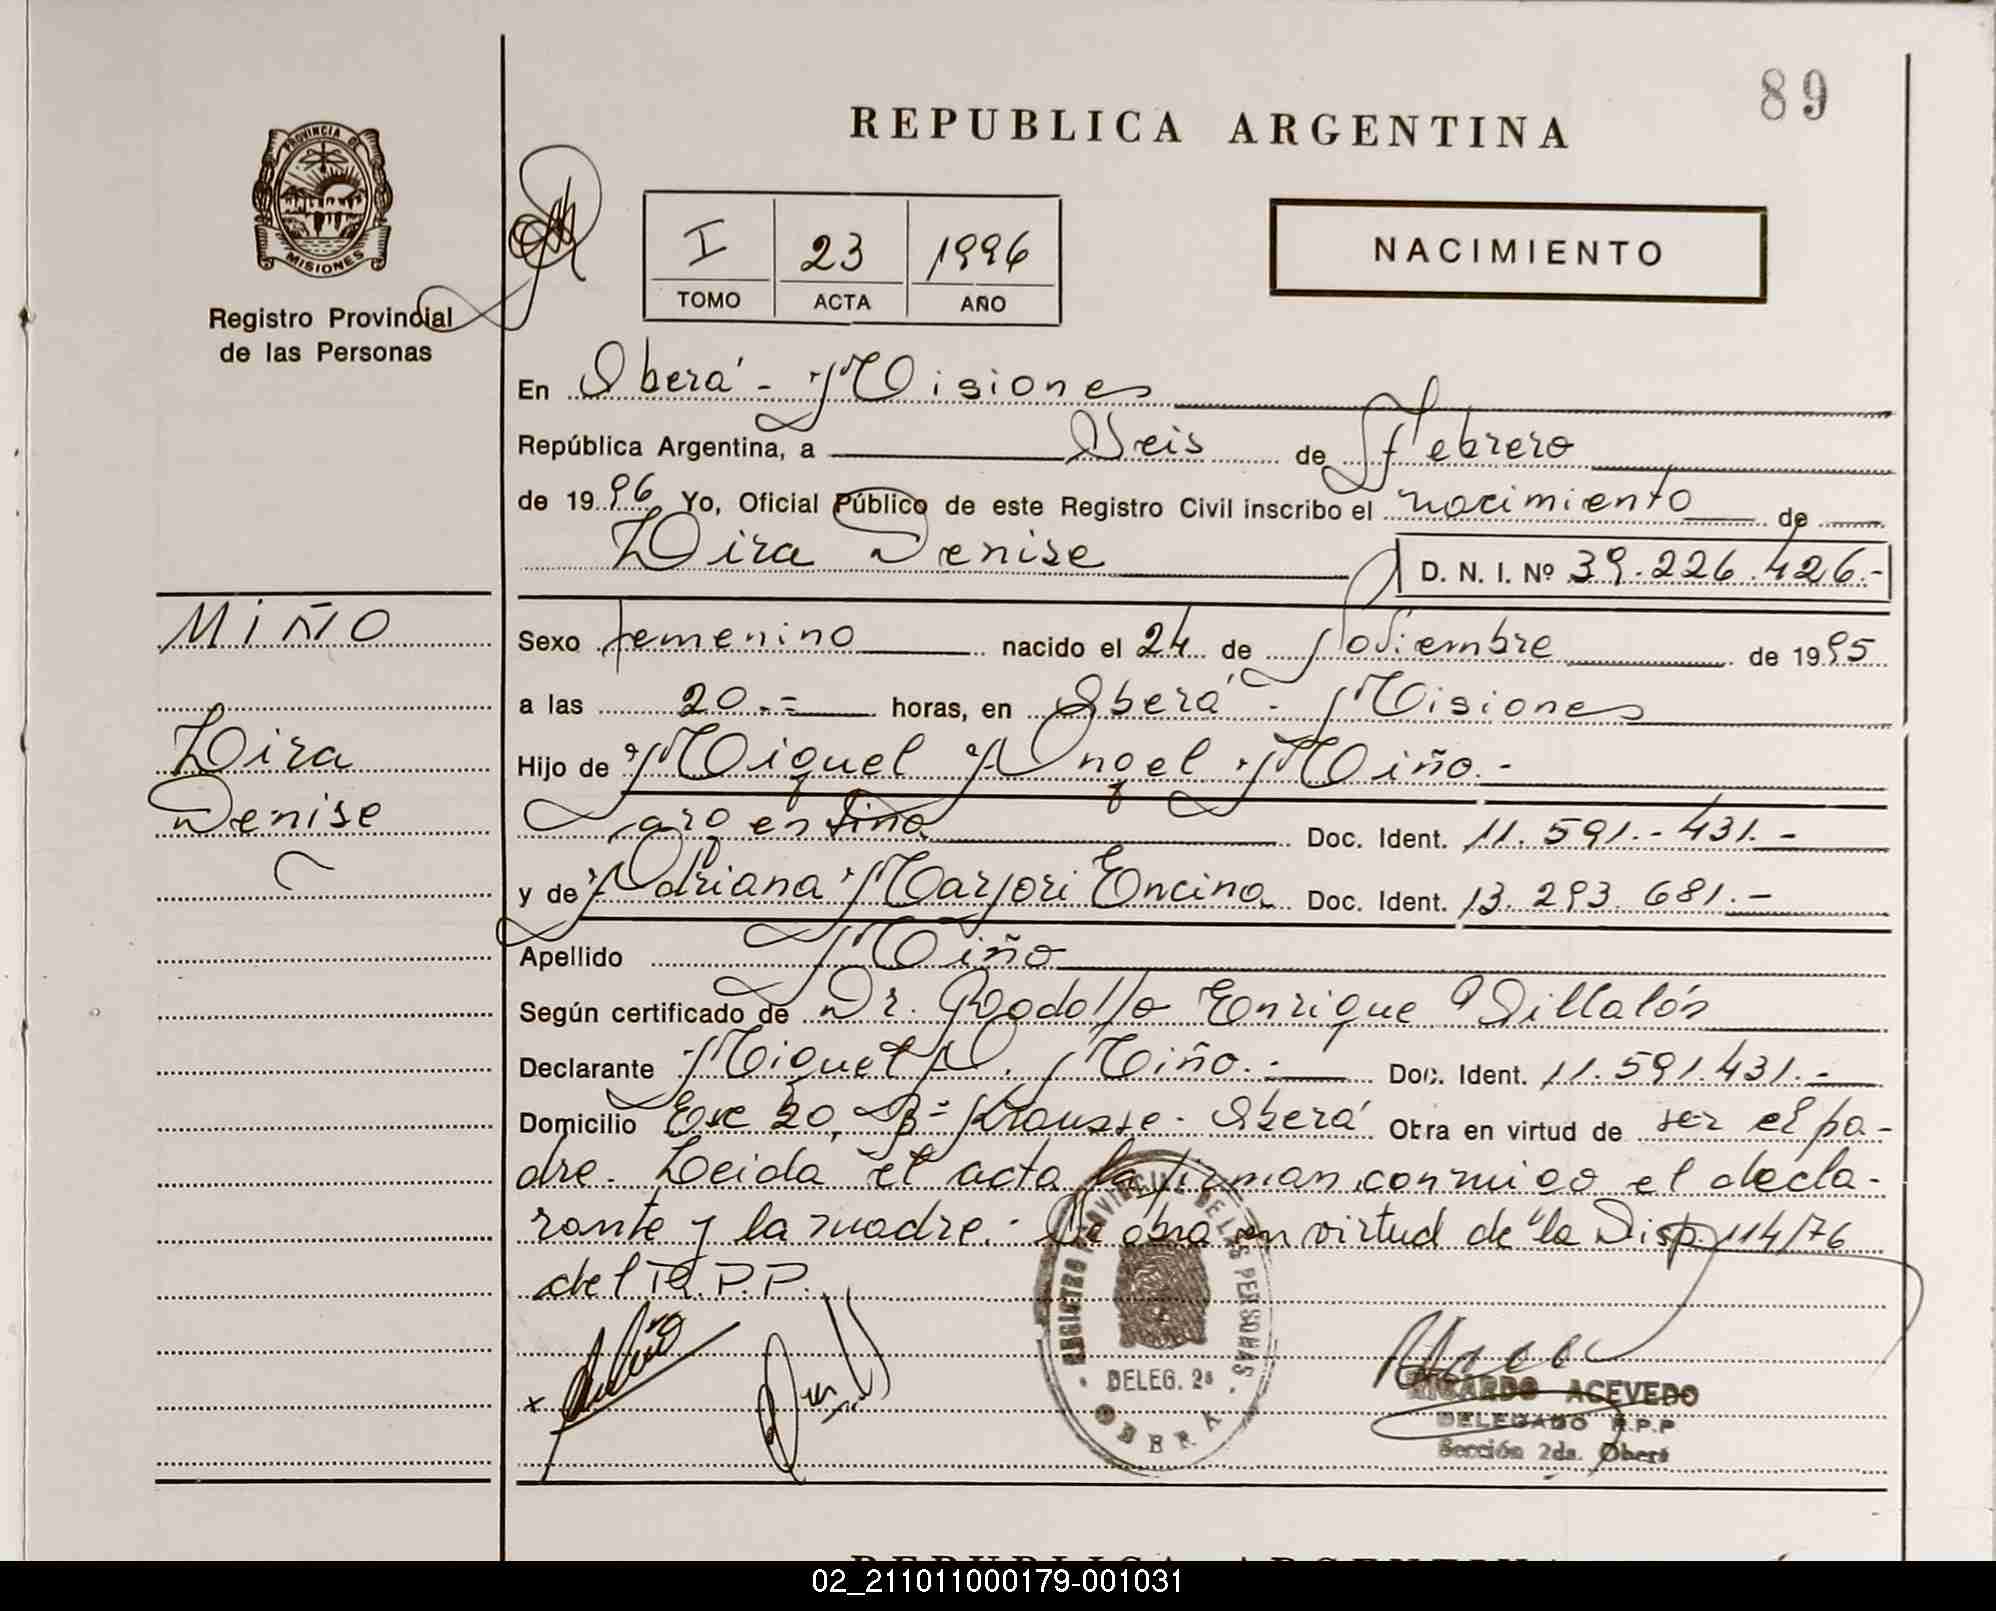 89
REPUBLICA ARGENTINA
PROVINCIA DE
MISIONES
Registro Provincial
de las Personas
I 23 1996
TOMO ACTA AÑO
NACIMIENTO
En Oberá - Misiones
República Argentina, a Seis de Febrero
de 1996 Yo, Oficial Público de este Registro Civil inscribo el nacimiento de
Dira Denise
D. N. I. Nº 39.226.426.-
MIÑO
Dira
Denise
Sexo femenino nacido el 24 de Noviembre de 1995
a las 20.= horas, en Oberá - Misiones
Hijo de Miguel Angel Miño.-
argentino Doc. Ident. 11.591.-431.-
y de Adriana Marjori Encina Doc. Ident. 13.293.681.-
Apellido Miño
Según certificado de Dr. Rodolfo Enrique Villalón
Declarante Miguel A. Miño.- Doc. Ident. 11.591.431.-
Domicilio Eve 20, Bº Krausse - Oberá Obra en virtud de ser el pa-
dre. Leida el acta la firman conmigo el decla-
rante y la madre.- Se obra en virtud de la Disp. 114/76
del R.P.P.
REGISTRO PROVINCIAL DE LAS PERSONAS
DELEG. 2ª
OBERA
RICARDO ACEVEDO
DELEGADO R.P.P
Sección 2da. Oberá
REPUBLICA ARGENTINA
02_211011000179-001031